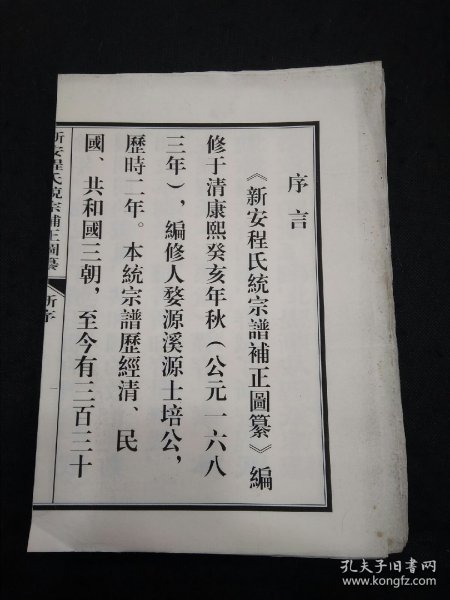 序言
《新安程氏統宗譜補正圖纂》編
修于清康熙癸亥年秋（公元一六八
三年），編修人婺源溪源士培公，
歷時二年。本統宗譜歷經清、民
國、共和國三朝，至今有三百三十
新安程氏統宗補正圖纂
新序
孔夫子旧书网
www.kongfz.com